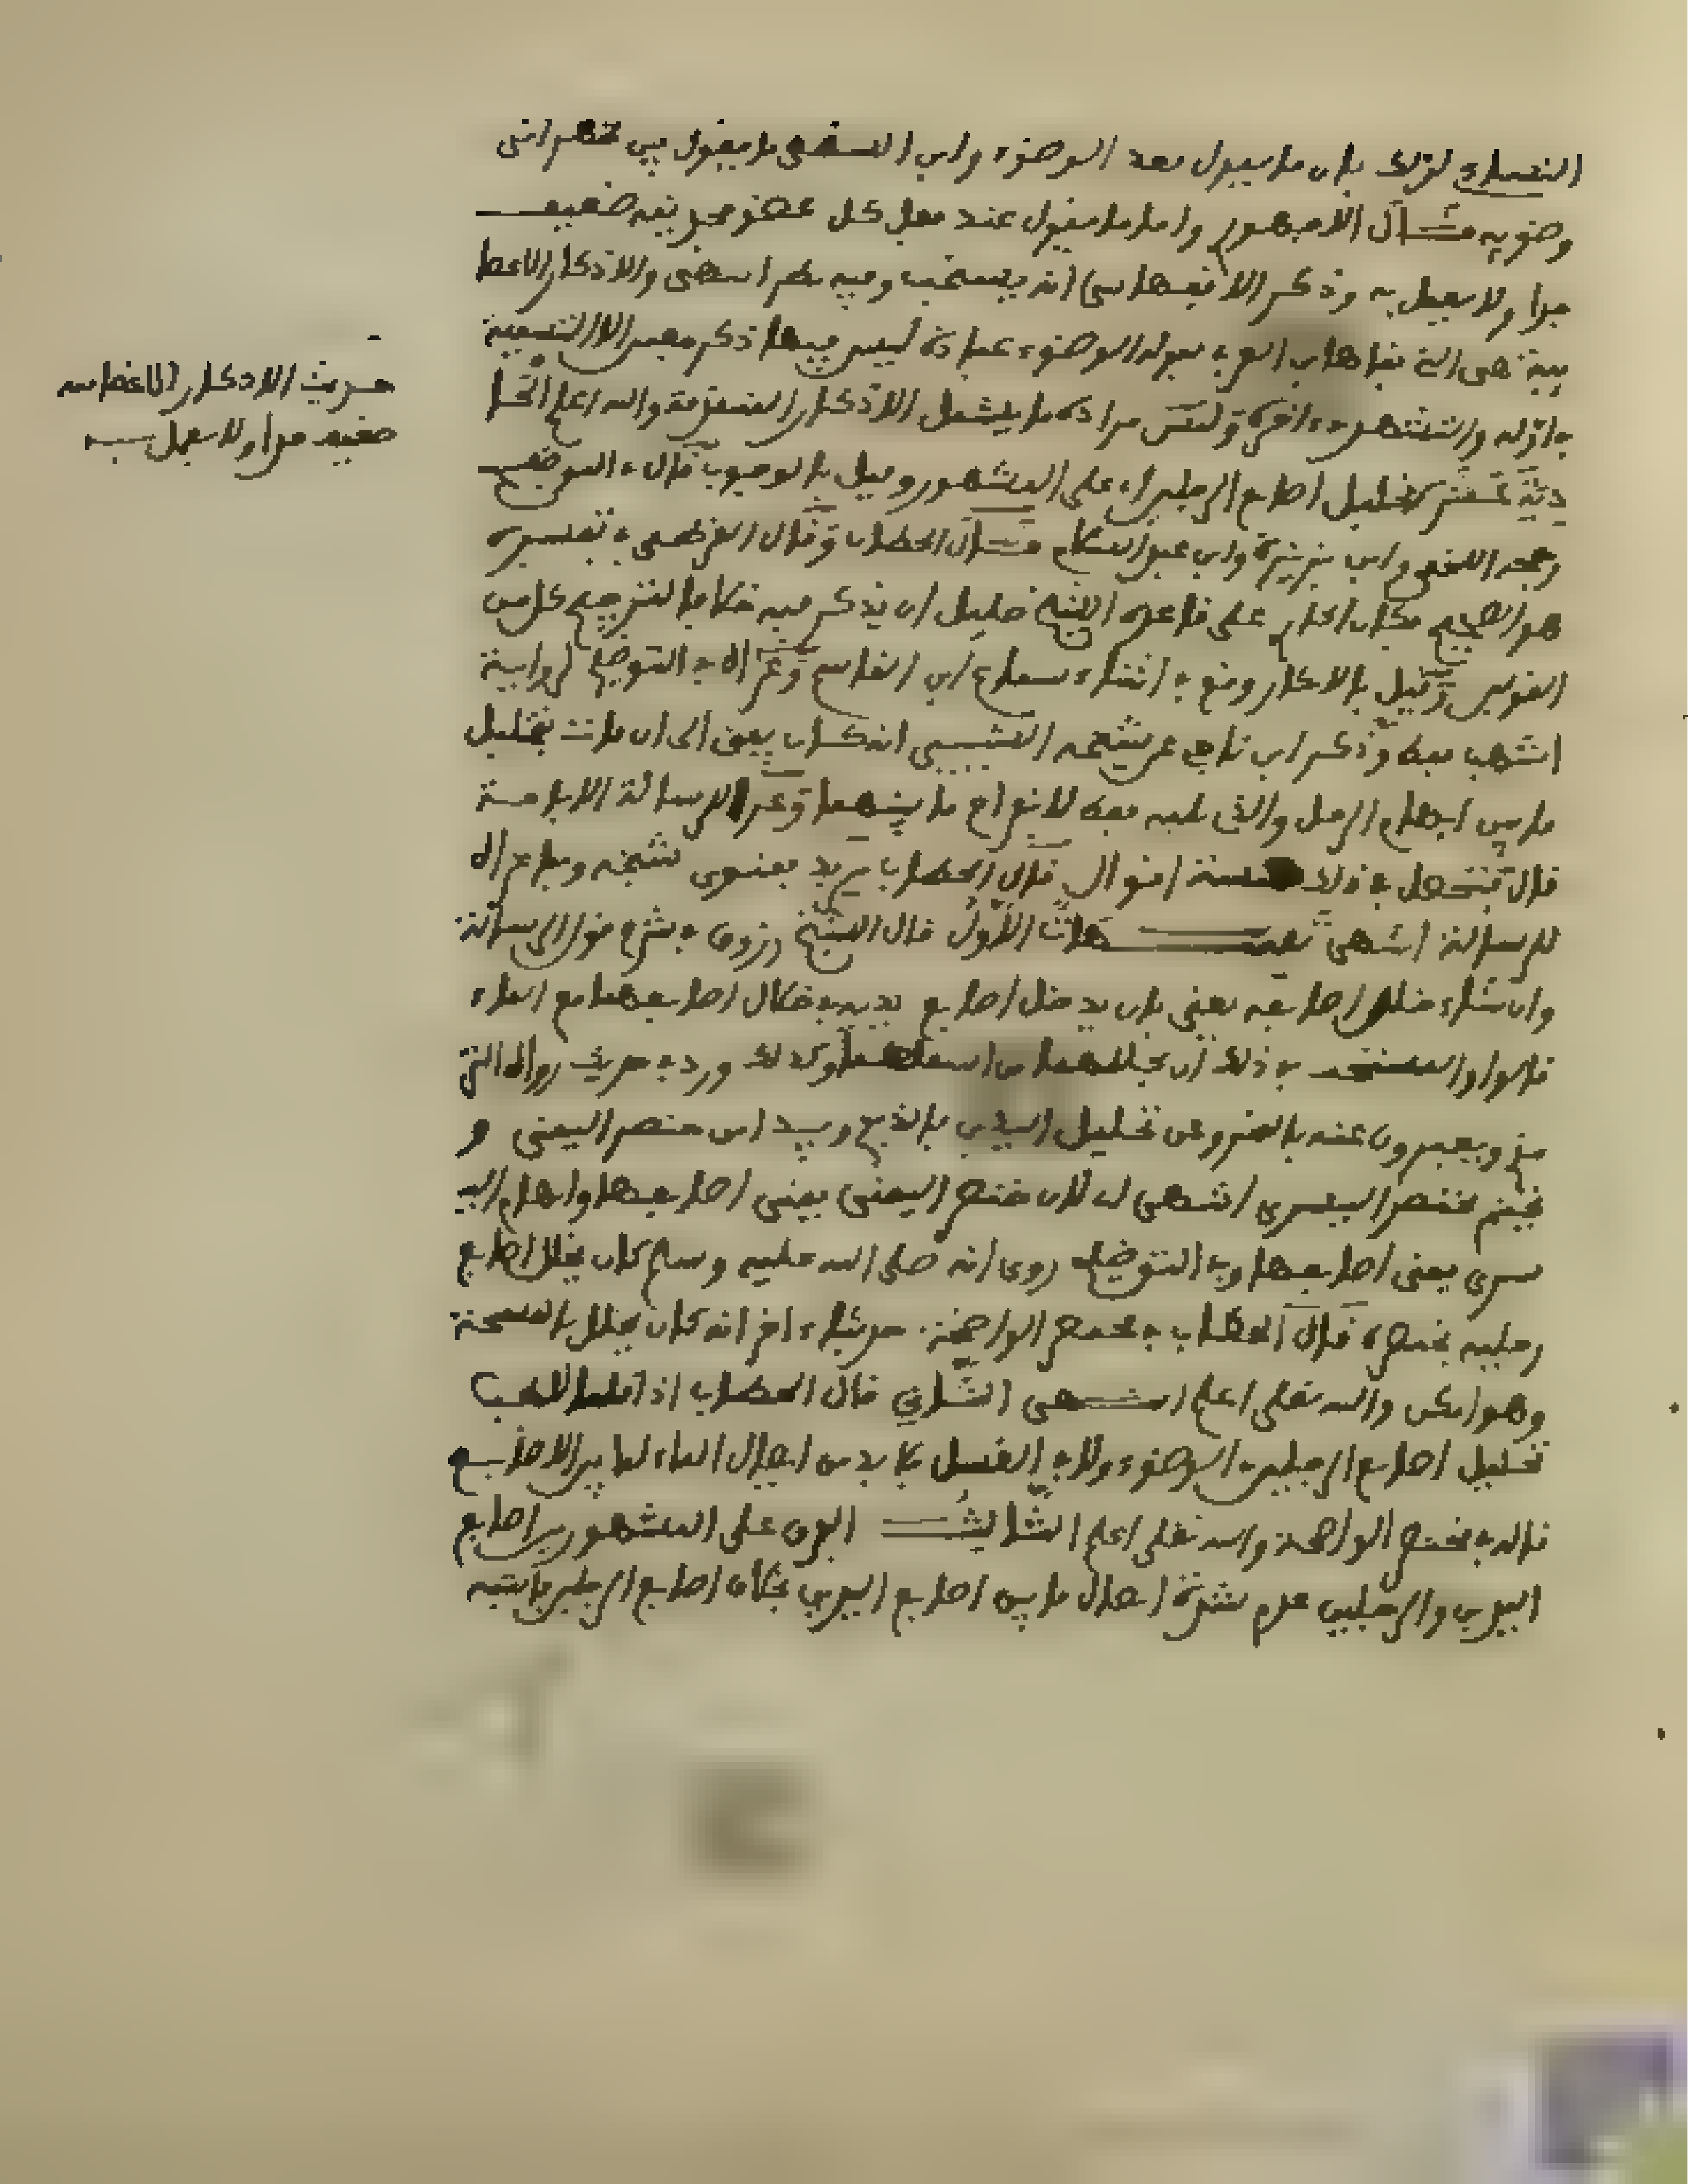 النساءي لذلك باب ما يقول بعد الوضوء وابن السني ما يقول بين ظهراني
وضوءيه قال الافهسي واما ما يقول عند فعل كل عضو فحديثه ضعيف
جدا ولا يعمل به وذكر الافقهسي انه يستحب وفيه نظر انتهى والاذكار الاعضا
ءية هي التي نفاها ابن العربي بقوله الوضوء عبادة ليس فيها ذكر معين الا التسمية
في اوله والتشهد في اخره وليس مراده ما يشمل الاذكار المتقدمة والله اعلم الحا
دية عشر تخليل اصابع الرجلين على المشهور وقيل بالوجوب قال في التوضيح
ورجحه اللخمي وابن بزيزة وابن عبد السلام قال الحطاب وقال القرطبي في تفسيره
هو الصحيح فكان الجاري على قاعدة الشيخ خليل ان يذكر فيه خلافا لترجيح كل من
القولين وقيل بالانكار ووقع في اثناء سماع ابن القاسم وعزاه في التوضيح لرواية
اشهب فيه وذكر ابن ناجي عن شيخه الشبيبي انه كان يفتي الى ان مات بتخليل
ما بين ابهام الرجل والذي يليه فقط لانفراج ما بينهما وعزا للرسالة الاباحة
قال فتحصل في ذلك خمسة اقوال قال الحطاب يريد بفتوى شيخه وبما عزاه
للرسالة انتهى تنبيهات الاول قال الشيخ زروق في شرح قول الرسالة
وان شاء خلل اصابعه يعني بان يدخل اصابع يديه في خلال اصابعهما مع الماء
قالوا والمستحب في ذلك ان يخللهما من اسفلهما وكذلك ورد في حديث رواه التر
مذي ويعبرون عنه بالنحر وعن تخليل اليدين بالذبح ويبدا من خنصر اليمنى و
يختم بخنصر اليسرى انتهى اي لان خنصر اليمنى يمنى اصابعها وابهام اليـ
ـسرى يمنى اصابعها وفي التوضيح روي انه صلى الله عليه وسلم كان يخلل اصابع
رجليه بخنصره قال الحطاب في مختصر الواضحة حديثا اخر انه كان يخلل بالمسبحة
وهو امكن والله تعالى اعلم انتهى الثاني قال الحطاب اذا قلنا لا يجب
تخليل اصابع الرجلين في الوضوء ولا في الغسل فلا بد من ايصال الماء لما بين الاصابع
قاله في مختصر الواضحة والله تعالى اعلم الثالث الفرق على المشهور بين اصابع
اليدين والرجلين عدم شدة اتصال ما بين اصابع اليدين بخلاف اصابع الرجلين
حديث الاذكار الاعضاءية
ضعيف جدا ولا يعمل به